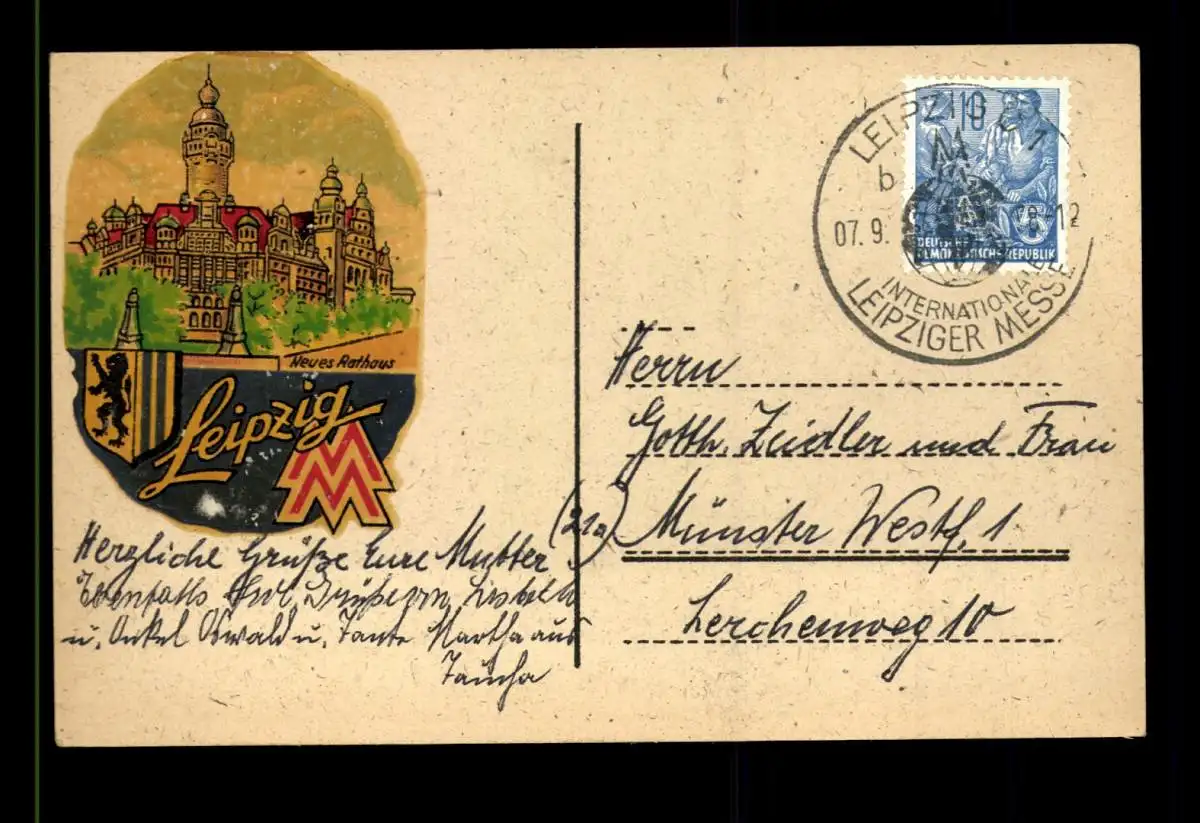 Neues Rathaus
Leipzig
MM
Herzliche Grüße Eure Mutter
Ebenfalls
u. Onkel Oswald u. Tante Martha aus
Taucha
LEIPZIG C 1
b
07.9. 12
INTERNATIONALE
LEIPZIGER MESSE
10
DEUTSCHE
DEMOKRATISCHE REPUBLIK
Herrn
Gotth. Zeidler und Frau
(21a) Münster Westf. 1
Lerchenweg 10